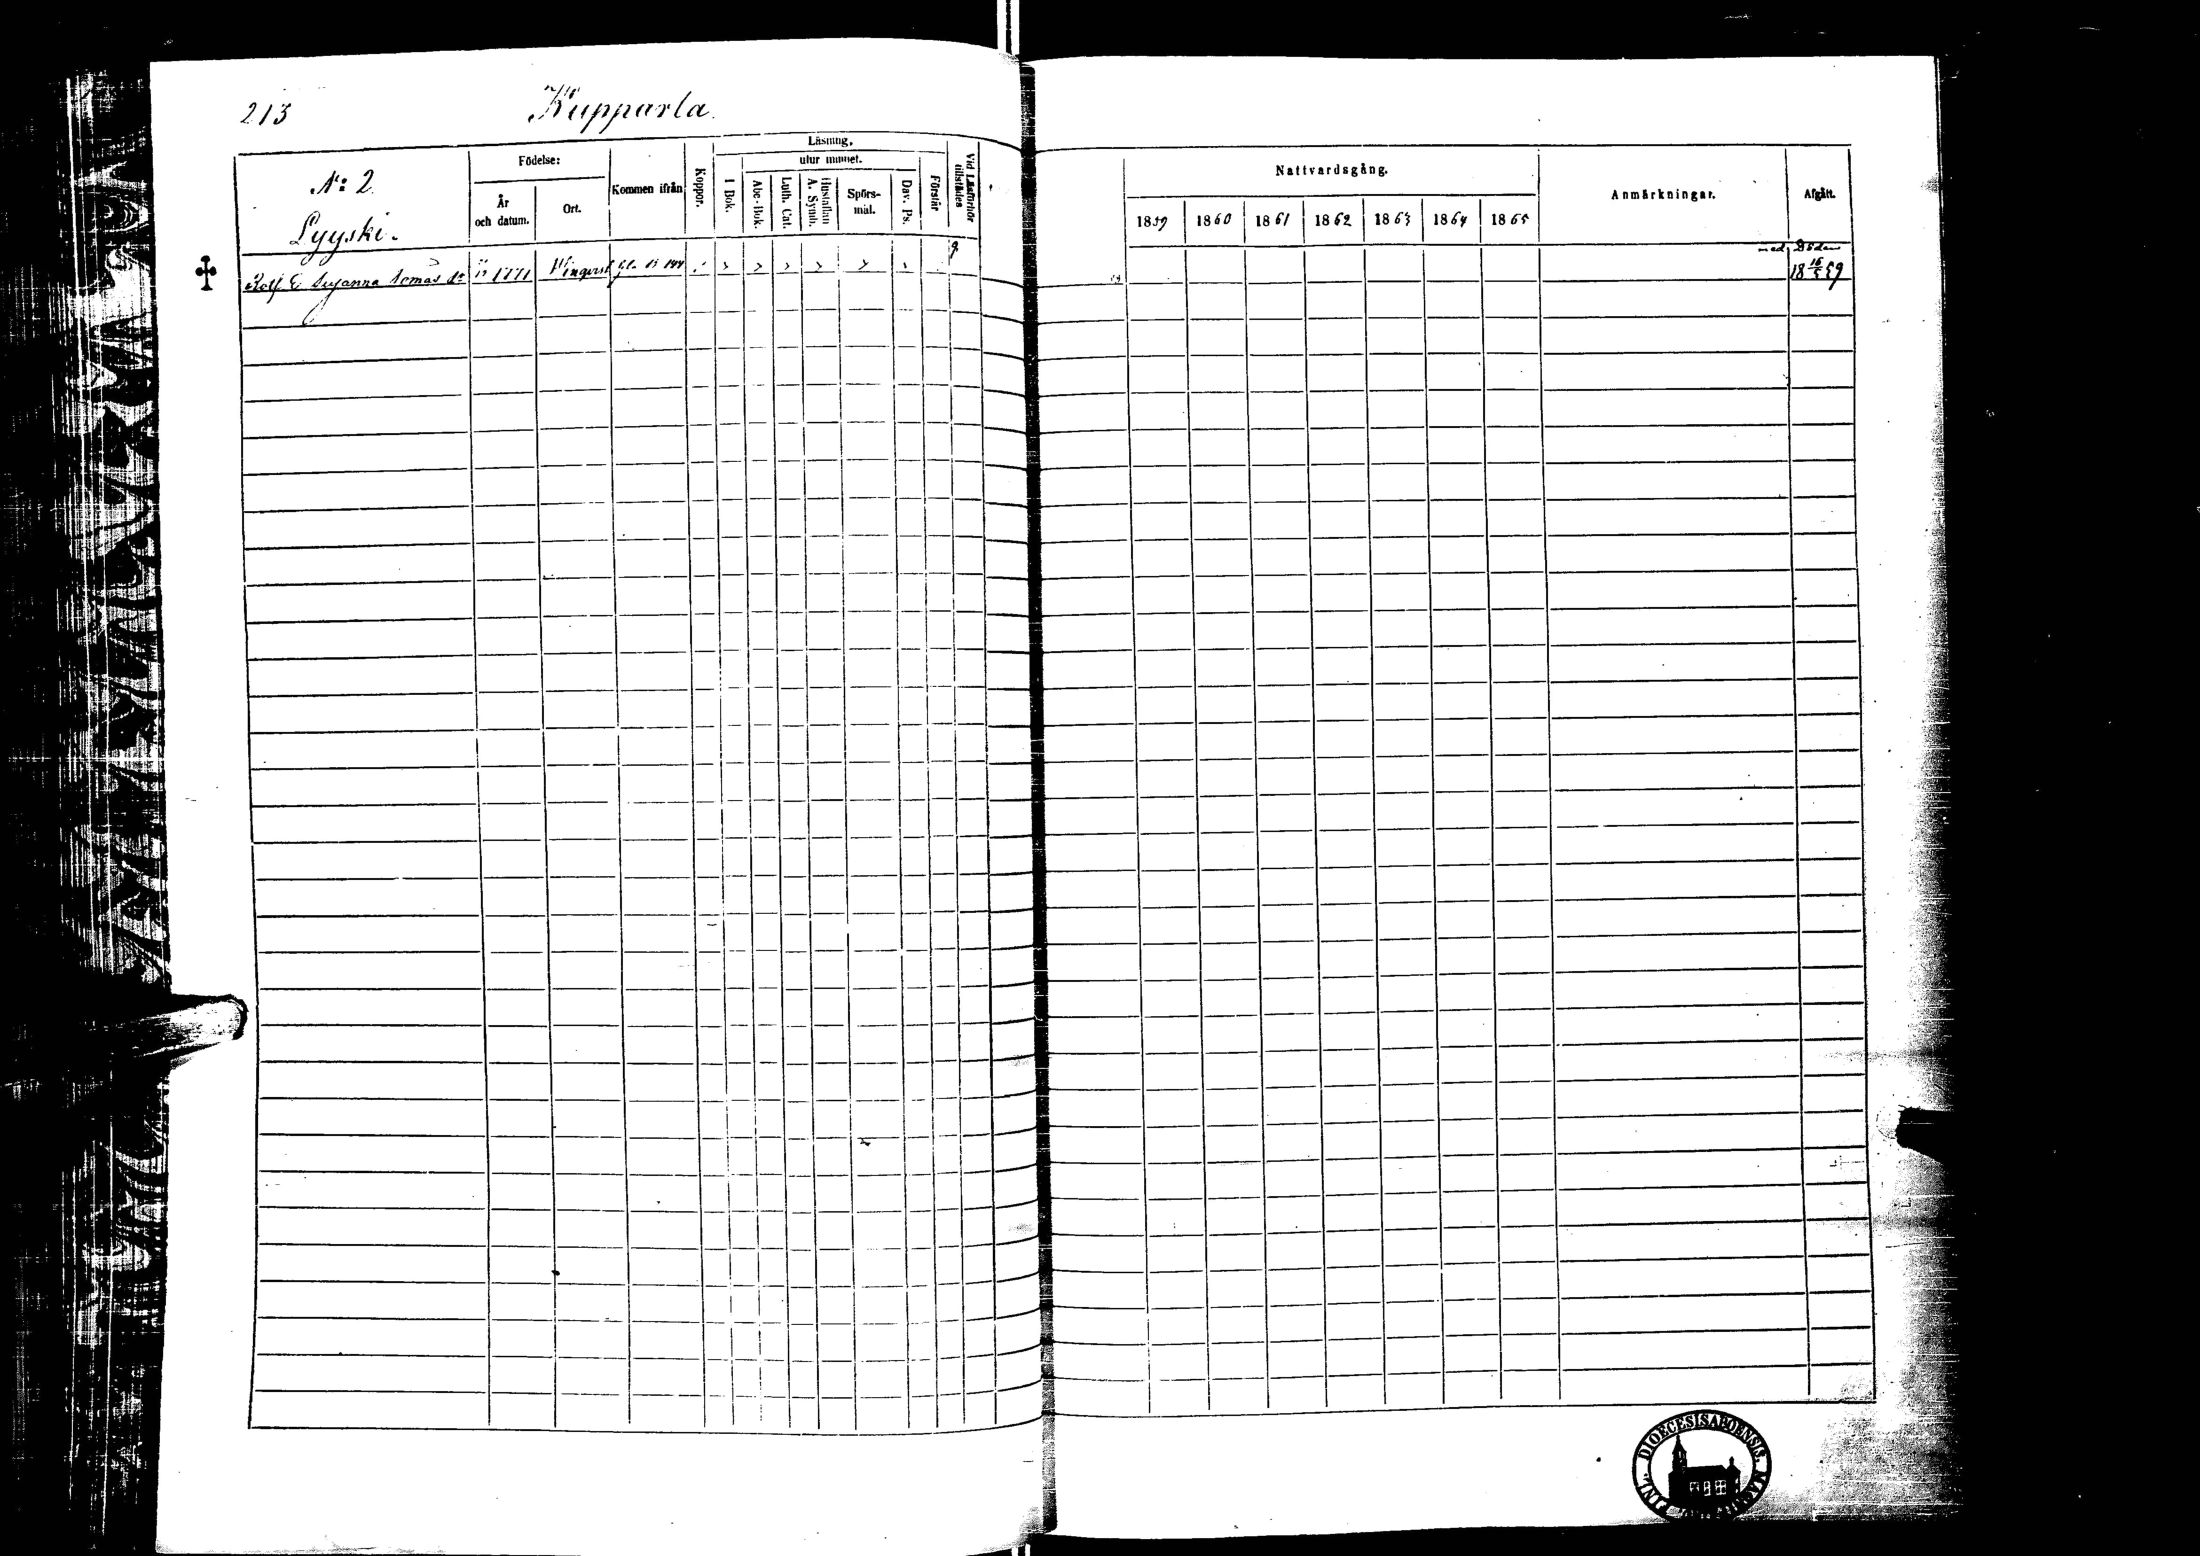 213
Kupparla.
Nº 2.
Lyyski.
Födelse:
År och datum.
Ort.
Kommen ifrån
Koppor.
Läsning,
utur minnet.
I Bok.
Abc-Bok.
Luth. Cat.
Hustaflan
A. Symb.
Spörs-
mål.
Dav. Ps.
Förstår
Vid Läsförhör
tillstädes
Susanna
1771
Nattvardsgång.
1859 1860 1861 1862 1863 1864 1865
Anmärkningar.
Afgått.
med Döden
18 16/5 59
DIOECESIS ABOENSIS